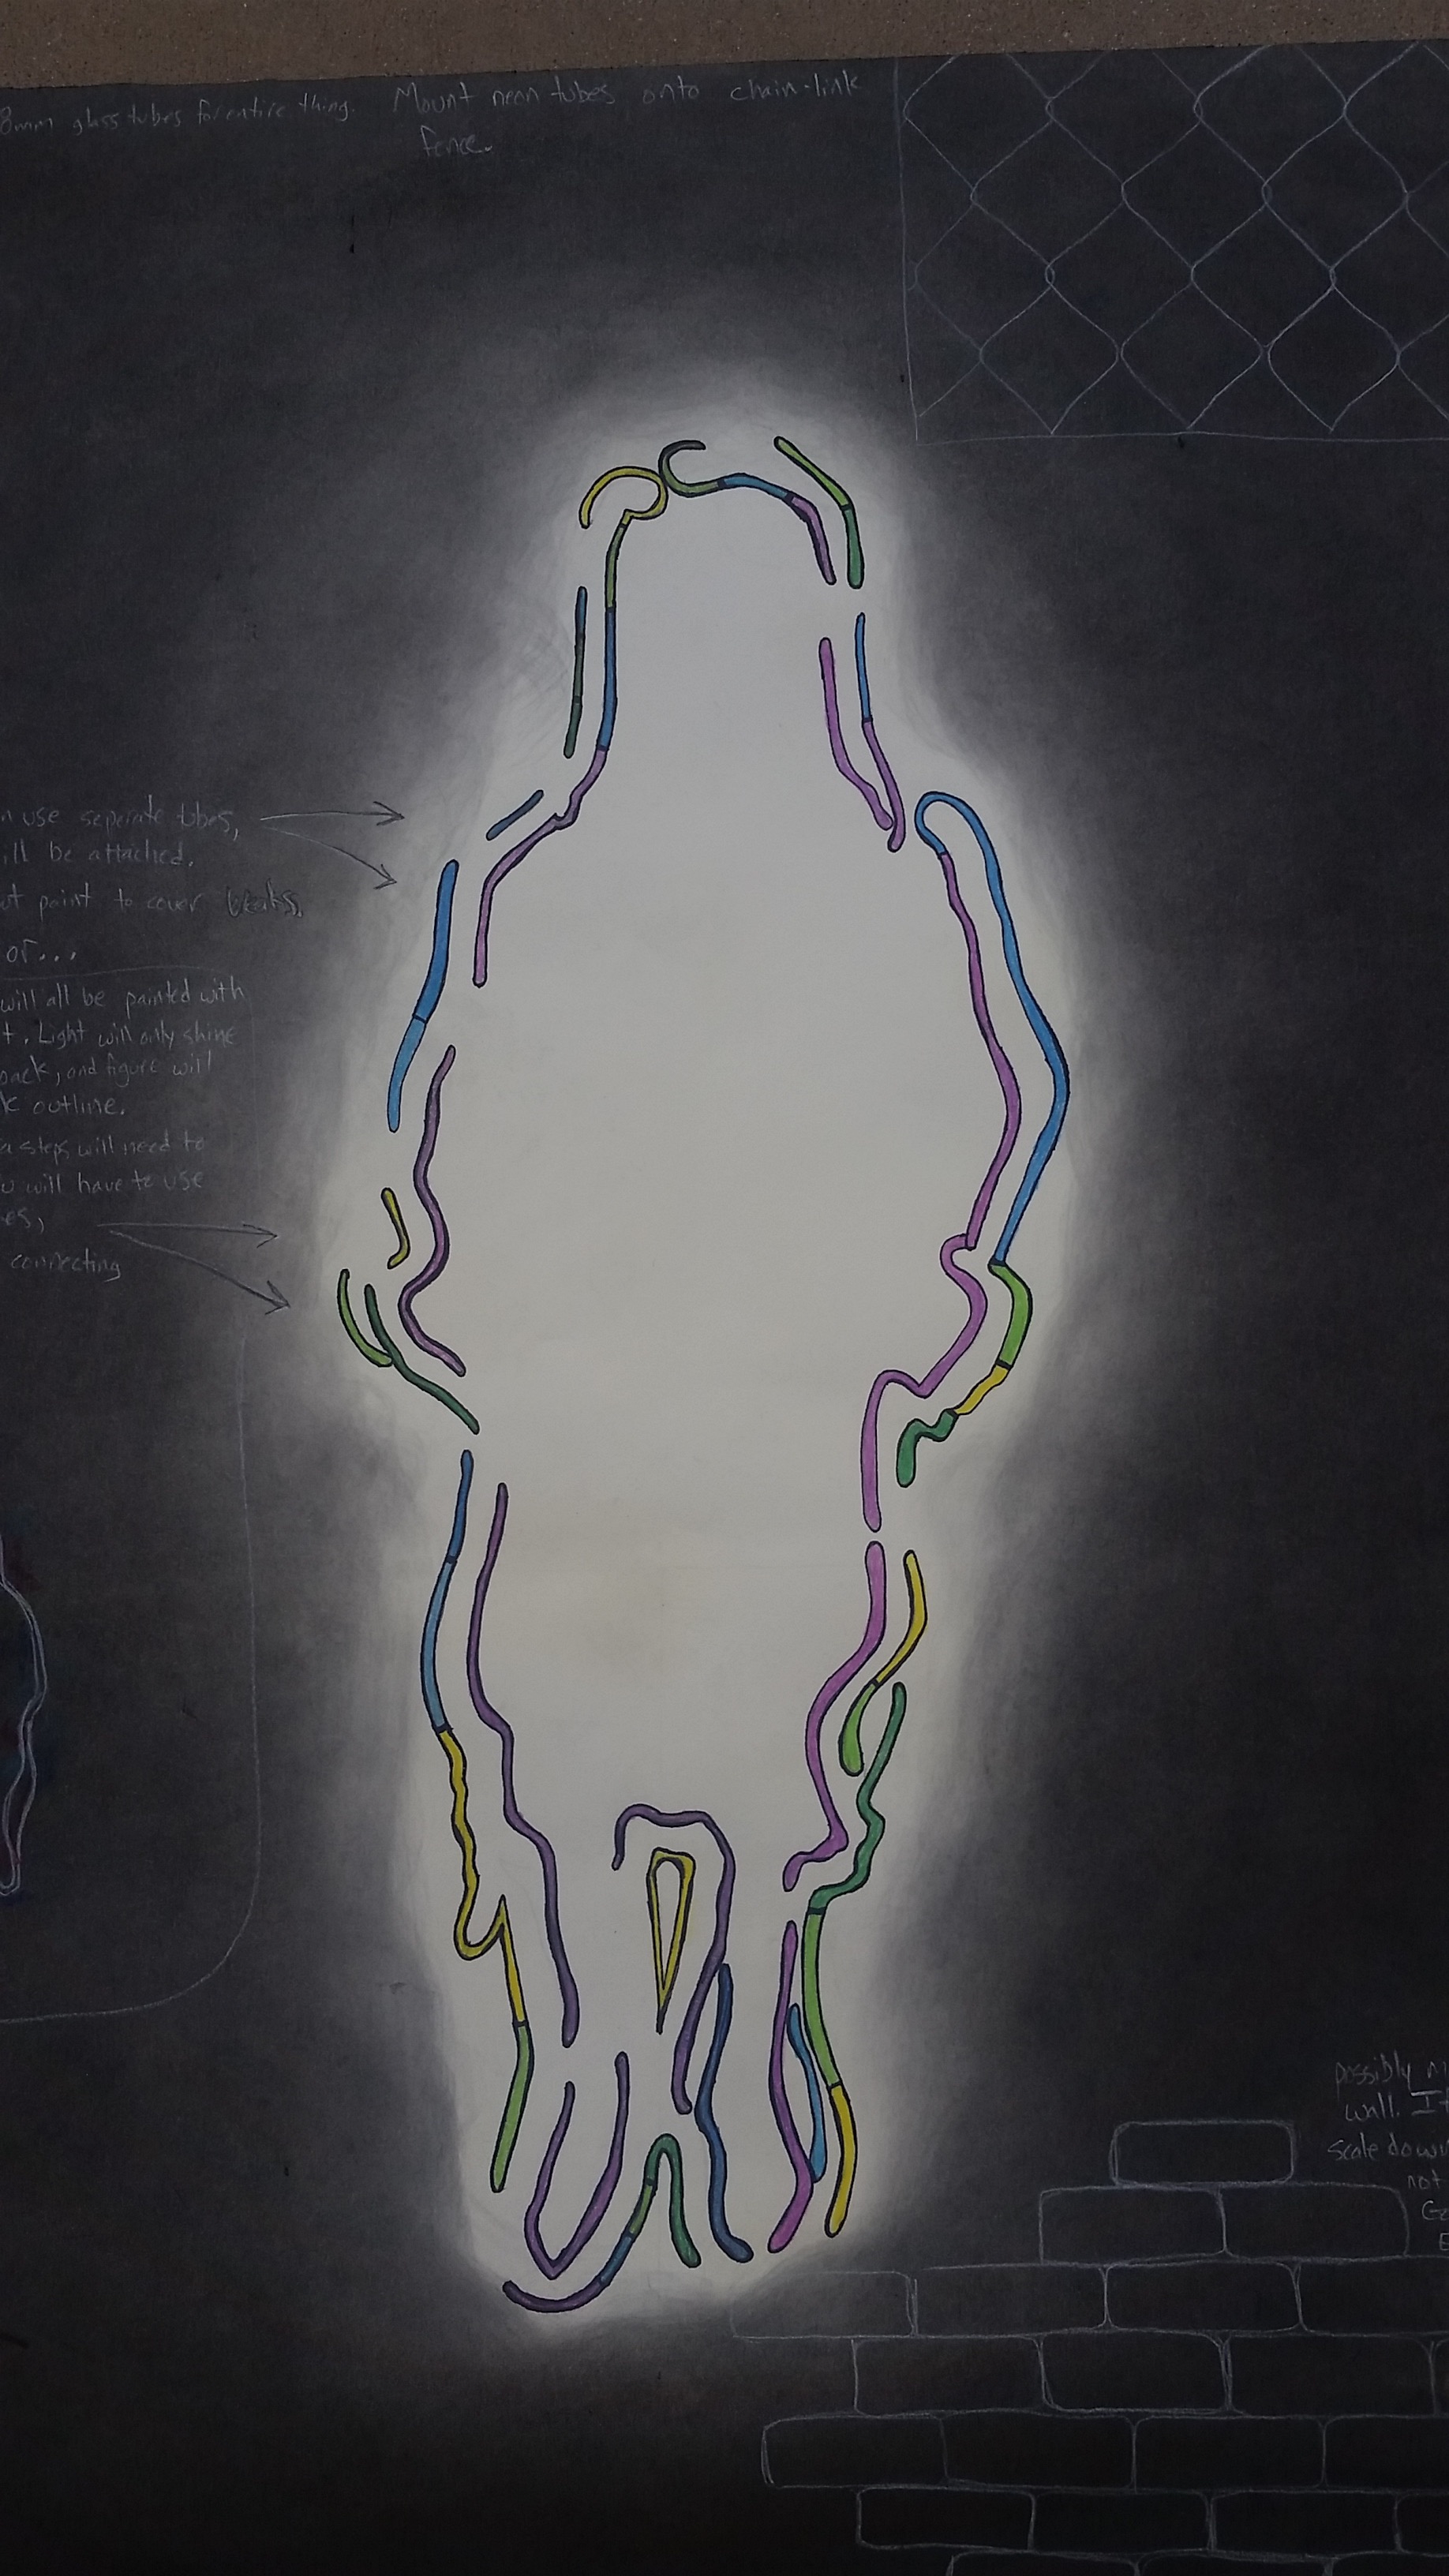 8mm glass tubes for entire thing.
Mount neon tubes onto chain-link
fence.
use seperate tubes,
ill be attached.
paint to cover breaks.
or...
will all be painted with
t. Light will only shine
back, and figure will
k outline.
steps will need to
will have to use
es,
connecting
possibly
wall. It
scale down
not